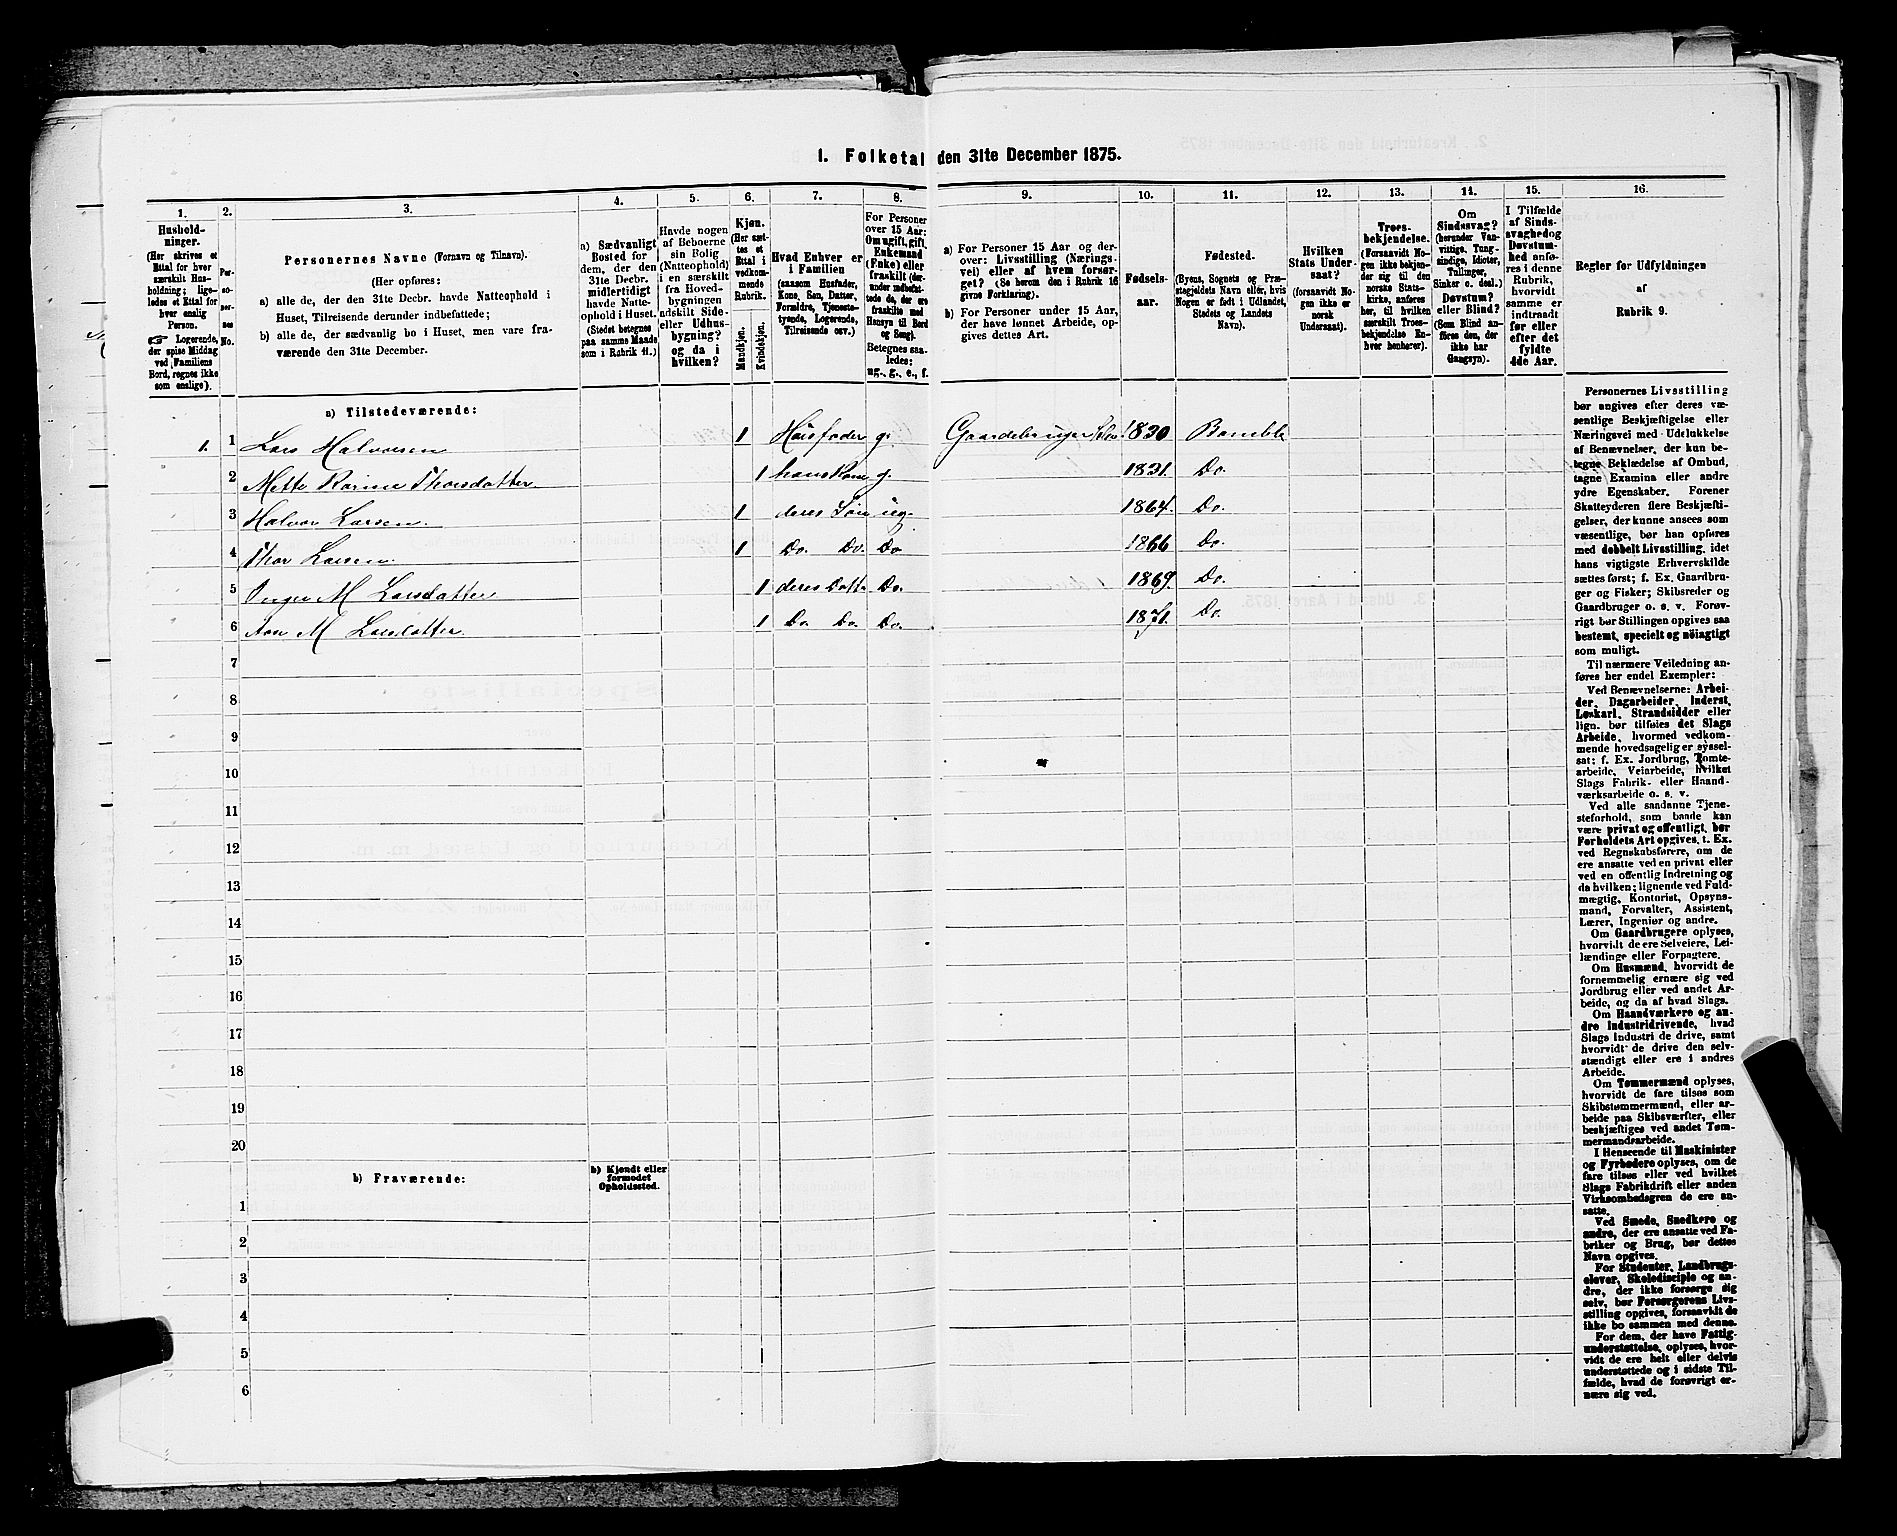 1. Folketal den 31te December 1875.
1. 2. 3. 4. 5. 6. 7. 8. 9. 10. 11. 12. 13. 14. 15. 16.
Hushold-
ninger.
(Her skrives et
Ettal for hver
særskilt Hus-
holdning; lige-
ledes et Ettal for
hver enslig
Person.
☞ Logerende,
der spise Middag
ved Familiens
Bord, regnes ikke
som enslige).
Per-
so-
per-
nes
No.
Personernes Navne (Fornavn og Tilnavn).
(Her opføres:
a) alle de, der den 31te Decbr. havde Natteophold i
Huset, Tilreisende derunder indbefattede;
b) alle de, der sædvanlig bo i Huset, men vare fra-
værende den 31te December.
a) Sædvanligt
Bosted for
dem, der den
31te Decbr.
midlertidigt
havde Natte-
ophold i Huset.
(Stedet betegnes
paa samme Maade
som i Rubrik 11.)
Havde nogen
af Beboerne
sin Bolig
(Natteophold)
i en særskilt
fra Hoved-
bygningen
adskilt Side-
eller Udhus-
bygning?
og da i
hvilken?
Kjøn.
(Her sæt-
tes et
Ettal i
vedkom-
mende
Rubrik.
Mandkjøn.
Kvindekjøn.
Hvad Enhver er
i Familien
(saasom Husfader,
Kone, Søn, Datter,
Forældre, Tjeneste-
tyende, Logerende,
Tilreisende osv.)
For Personer
over 15 Aar:
Om ugift, gift,
Enkemand
(Enke) eller
fraskilt (der-
under indbefat-
tede de, der ere
fraskilte med
Hensyn til Bord
og Seng).
Betegnes saa-
ledes:
ug., g., e., f.
a) For Personer 15 Aar og der-
over: Livsstilling (Nærings-
vei) eller af hvem forsør-
get? (Se herom den i Rubrik 16
givne Forklaring).
b) For Personer under 15 Aar,
der have lønnet Arbeide, op-
gives dettes Art.
Fødsels-
aar.
Fødested.
(Byens, Sognets og Præ-
stegjeldets Navn eller, hvis
Nogen er født i Udlandet,
Stedets og Landets
Navn).
Hvilken
Stats Under-
saat?
(forsaavidt No-
gen ikke er
norsk
Undersaat).
Troes-
bekjendelse.
(Forsaavidt No-
gen ikke bekjen-
der sig til den
norske Stats-
kirke, anføres
her, til hvilken
særskilt Troes-
bekjendelse En-
hver henhører).
Om
Sindssvag?
(herunder Van-
vittige, Tung-
sindige, Idioter,
Tullinger,
Sinker o. desl.)
Døvstum?
eller Blind?
(Som Blind an-
føres den, der
ikke har
Gangsyn).
I Tilfælde
af Sinds-
svaghed og
Døvstum-
hed anfø-
res i denne
Rubrik,
hvorvidt
samme er
indtraadt
før eller
efter det
fyldte
4de Aar.
Regler for Udfyldningen
af
Rubrik 9.
a) Tilstedeværende:
1. 1 Lars Halvorsen 1 Huusfader g. Gaardebruger Selv. 1830 Bamble
2 Mette Karine Thorsdatter 1 hans Kone g. 1831. Do.
3 Halvor Larsen. 1 deres Søn ug. 1864. Do.
4 Thor Larsen. 1 Do. Do. Do 1866 Do.
5 Inger M Larsdatter 1 deres Datte Do. 1869. Do.
6 Ann M Larsdatter. 1 Do. Do. Do. 1871. Do.
7
8
9
10
11
12
13
14
15
16
17
18
19
20
b) Fraværende:
b) Kjendt eller
formodet
Opholdssted.
1
2
3
4
5
6
Personernes Livsstilling
bør angives efter deres væ-
sentlige Beskjæftigelse eller
Næringsvei med Udelukkelse
af Benævnelser, der kun be-
tegne Beklædelse af Ombud,
tagne Examina eller andre
ydre Egenskaber. Forener
Skatteyderen flere Beskjæfti-
gelser, der kunne ansees som
væsentlige, bør han opføres
med dobbelt Livsstilling, idet
hans vigtigste Erhvervskilde
sættes først; f. Ex. Gaardbru-
ger og Fisker; Skibsreder og
Gaardbruger o. s. v. Forøv-
rigt bør Stillingen opgives saa
bestemt, specielt og nöiagtigt
som muligt.
Til nærmere Veiledning an-
føres her endel Exempler:
Ved Benævnelserne: Arbei-
der, Dagarbeider, Inderst,
Løskarl, Strandsidder eller
lign. bør tilføies det Slags
Arbeide, hvormed vedkom-
mende hovedsagelig er syssel-
sat; f. Ex. Jordbrug, Tomte-
arbeide, Veiarbeide, hvilket
Slags Fabrik- eller Haand-
værksarbeide o. s. v.
Ved alle saadanne Tjene-
steforhold, som baade kan
være privat og offentligt, bør
Forholdets Art opgives, t. Ex.
ved Regnskabsførere, om de
ere ansatte ved en privat eller
ved en offentlig Indretning og
da hvilken; lignende ved Fuld-
mægtig, Kontorist, Opsyns-
mand, Forvalter, Assistent,
Lærer, Ingeniør og andre.
Om Gaardbrugere oplyses,
hvorvidt de ere Selveiere, Lei-
lændinge eller Forpagtere.
Om Husmænd, hvorvidt de
fornemmelig ernære sig ved
Jordbrug eller ved andet Ar-
beide, og da af hvad Slags.
Om Haandværkere og an-
dre Industridrivende, hvad
Slags Industri de drive, samt
hvorvidt de drive den selv-
stændigt eller ere i andres
Arbeide.
Om Tømmermænd oplyses,
hvorvidt de fare tilsøs som
Skibstømmermænd, eller ar-
beide paa Skibsværfter, eller
beskjæftiges ved andet Tøm-
mermandsarbeide.
I Henseende til Maskinister
og Fyrbødere oplyses, om de
fare tilsøs eller ved hvilket
Slags Fabrikdrift eller anden
Virksombedsgren de ere an-
satte.
Ved Smede, Snedkere og
andre, der ere ansatte ved Fa-
briker og Brug, bør dettes
Navn opgives.
For Studenter, Landbrugs-
elever, Skoledisciple og an-
dre, der ikke forsørge sig
selv, bør Forsørgerens Livs-
stilling opgives, forsaavidt de
ikke bo sammen med denne.
For dem, der have Fattig-
understøttelse, oplyses, hvor-
vidt de ere helt eller delvis
understøttede og i sidste Til-
fælde, hvad de forøvrigt er-
nære sig ved.